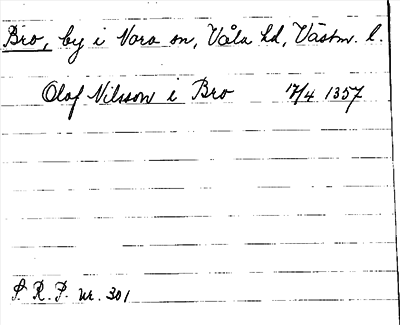 Bro, by i Nora sn, Våla hd, Västm. l.
Olof Nilsson i Bro 17/4 1357
S. R. P. nr. 301